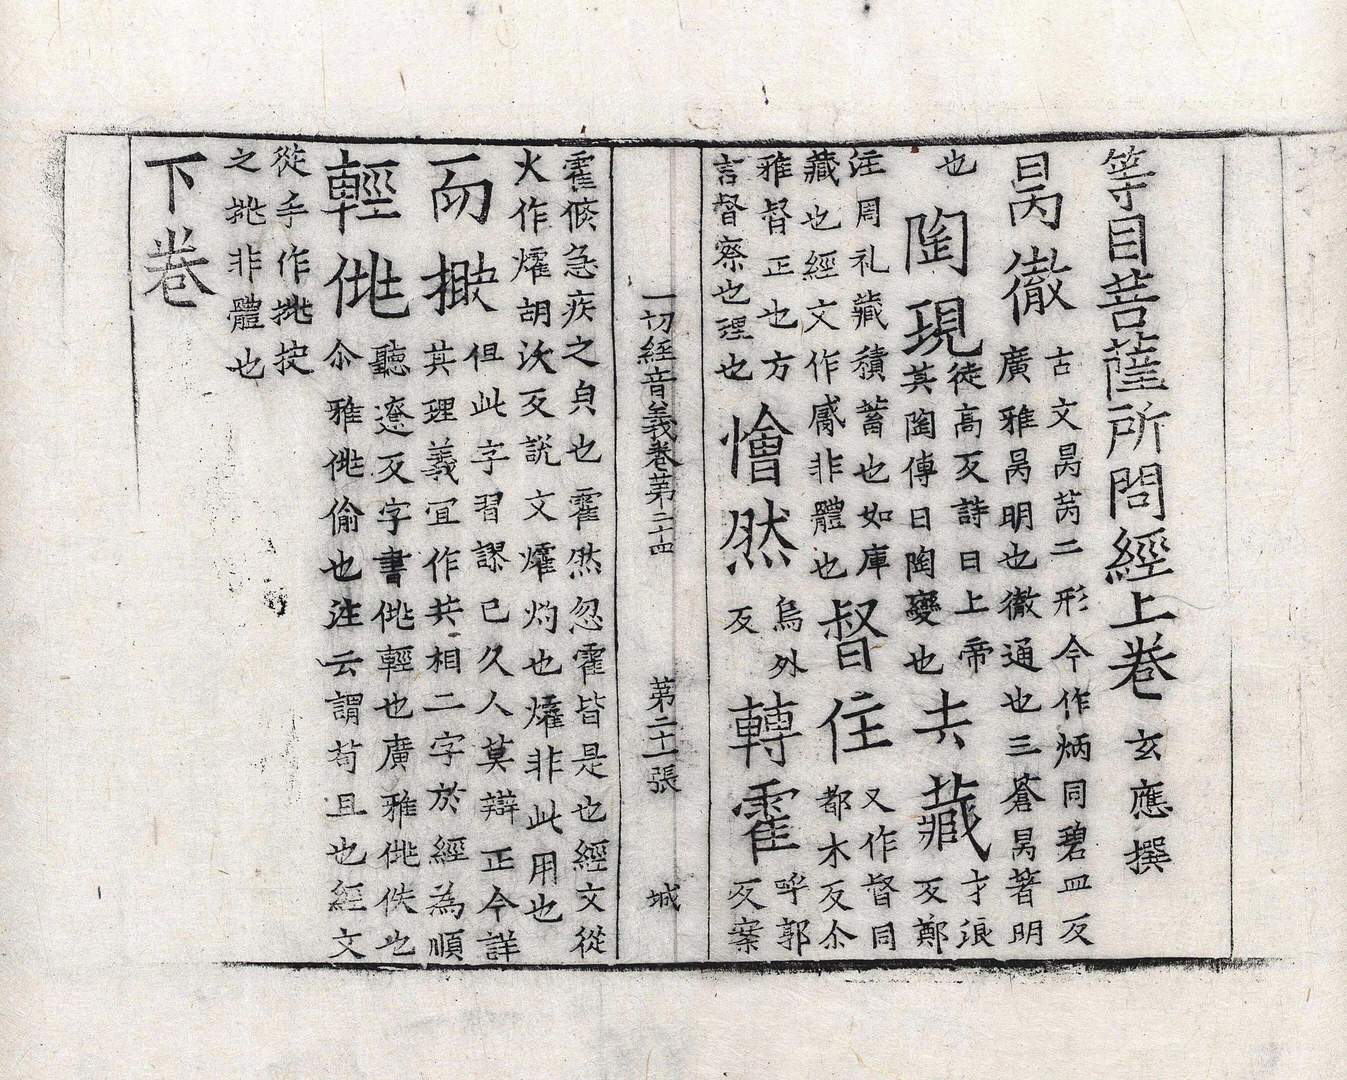 等目菩薩所問經上卷 玄應撰
昺徹 古文昺苪二形今作炳同碧皿反
廣雅昺明也徹通也三蒼昺著明
也 陶現 徒高反詩曰上帝
其陶傳曰陶變也 去藏 才浪
反鄭
注周礼藏積蓄也如庫
藏也經文作臧非體也 督住 又作督同
都木反尒
雅督正也方
言督察也理也 懀然 烏外
反 轉霍 呼郭
反案
霍倐急疾之皃也霍然忽霍皆是也經文從
火作㸌胡沃反說文㸌灼也㸌非此用也
而掀 但此字習謬已久人莫辯正今詳
其理義宜作共相二字於經為順
輕佻 聽遼反字書佻輕也廣雅佻佚也
尒雅佻偷也注云謂苟且也經文
從手作挑挍
之挑非體也
下卷
一切經音義卷苐二十四 苐二十一張 城